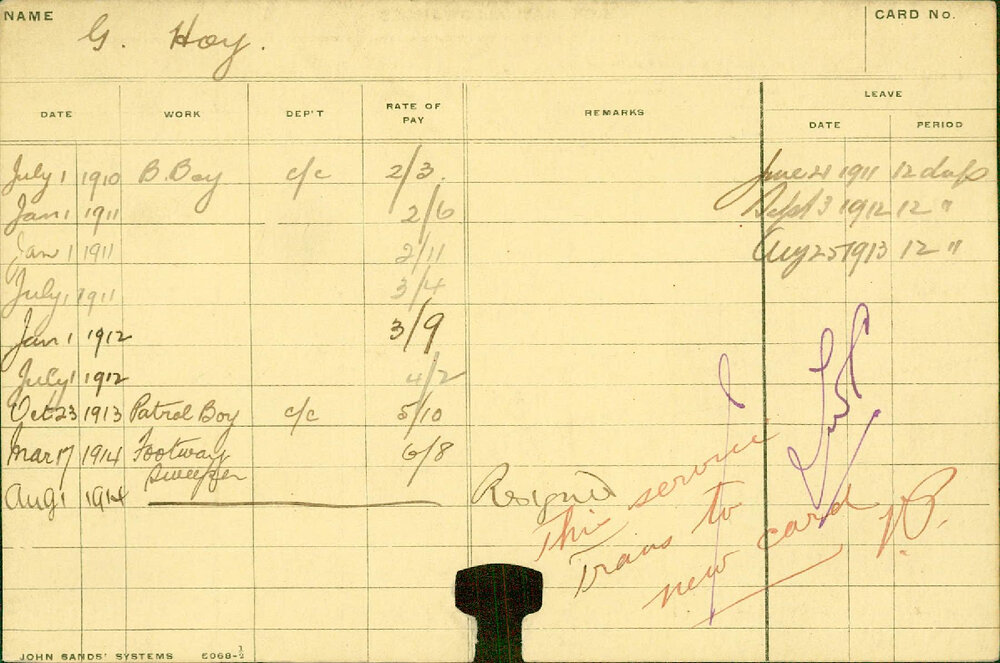 NAME
G. Hoy.
CARD No.
DATE WORK DEP'T RATE OF PAY REMARKS LEAVE
DATE PERIOD
July 1 1910 B. Boy c/c 2/3. June 21 1911 12 days
Jan 1 1911 2/6 Sept 3 1912 12 "
Jan 1 1911 2/11 Aug 25 1913 12 "
July 1 1911 3/4
Jan 1 1912 3/9
July 1 1912 4/2
Oct 23 1913 Patrol Boy c/c 5/10
Mar 17 1914 Footway 6/8
Sweeper
Aug 1 1914 Resigned
This service
Trans to
new card
JOHN SANDS' SYSTEMS 5068-½